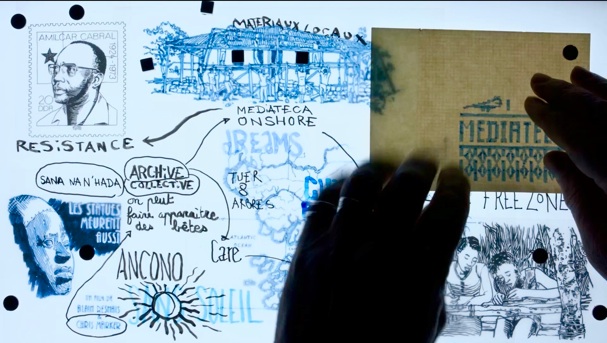 AMILCAR CABRAL
RESISTANCE
MATERIAUX LOCAUX
MEDIATECA
ONSHORE
SANA NAN'HADA
ARCHIVE
COLLECTIVE
on peut
faire apparaître
des bêtes
DREAMS
TUER
&
ARBRES
Care
LES STATUES
MEURENT
AUSSI
UN FILM DE
ALAIN RESNAIS
CHRIS MARKER
ANCONO
SANS SOLEIL
ATLANTIC
OCEAN
MEDIATE
FREE ZONE